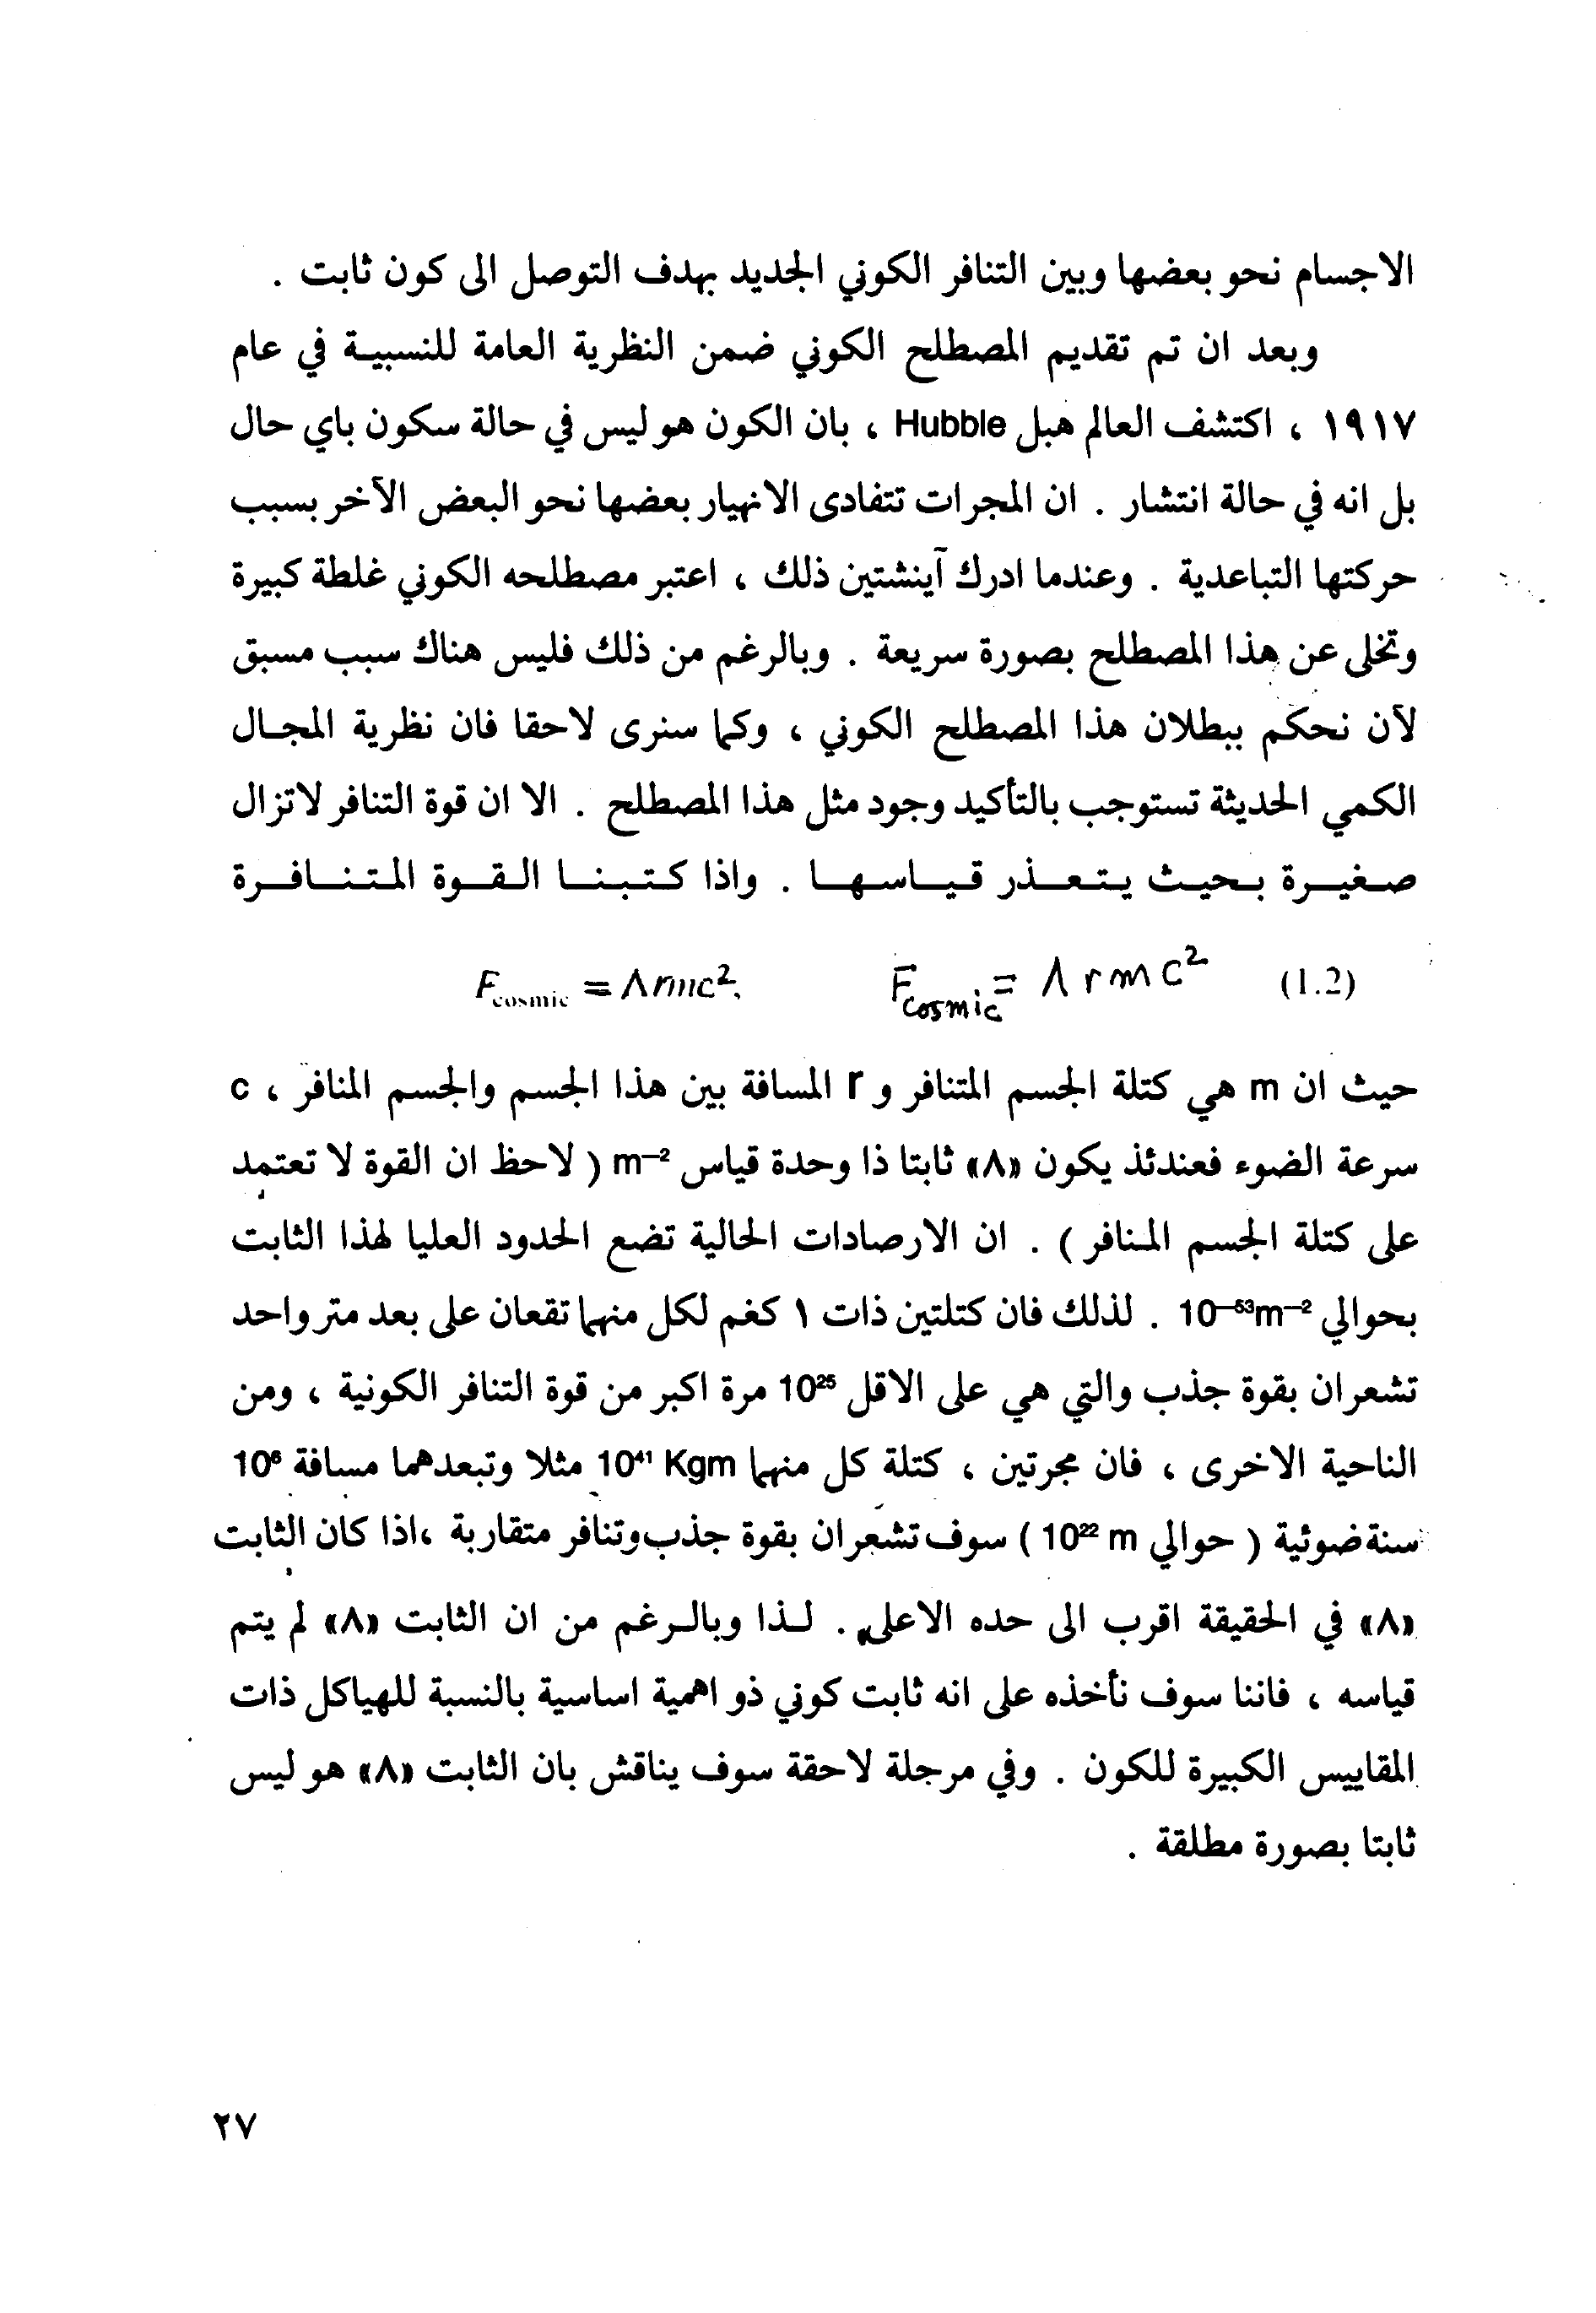 الاجسام نحو بعضها وبين التنافر الكوني الجديد بهدف التوصل الى كون ثابت .
وبعد ان تم تقديم المصطلح الكوني ضمن النظرية العامة للنسبيـة في عام
١٩١٧ ، اكتشف العالم هبل Hubble ، بان الكون هو ليس في حالة سكون باي حال
بل انه في حالة انتشار . ان المجرات تتفادى الانهيار بعضها نحو البعض الآخر بسبب
حركتها التباعدية . وعندما ادرك آينشتين ذلك ، اعتبر مصطلحه الكوني غلطة كبيرة
وتخلى عن هذا المصطلح بصورة سريعة . وبالرغم من ذلك فليس هناك سبب مسبق
لآن نحكم ببطلان هذا المصطلح الكوني ، وكما سنرى لاحقا فان نظرية المجـال
الكمي الحديثة تستوجب بالتأكيد وجود مثل هذا المصطلح . الا ان قوة التنافر لاتزال
صـغيـرة بـحيـث يـتـعـذر قـيـاسـهـا . واذا كـتـبـنـا الـقـوة المـتـنـافـرة
F_cosmic = Λrmc². F_cosmic = Λ r m c² (1.2)
حيث ان m هي كتلة الجسم المتنافر و r المسافة بين هذا الجسم والجسم المنافر ، c
سرعة الضوء فعندئذ يكون «Λ» ثابتا ذا وحدة قياس m⁻² ( لاحظ ان القوة لا تعتمد
على كتلة الجسم المـنافر ) . ان الارصادات الحالية تضع الحدود العليا لهذا الثابت
بحوالي 10⁻⁵³m⁻² . لذلك فان كتلتين ذات ١ كغم لكل منهما تقعان على بعد متر واحد
تشعران بقوة جذب والتي هي على الاقل 10²⁵ مرة اكبر من قوة التنافر الكونية ، ومن
الناحية الاخرى ، فان مجرتين ، كتلة كل منهما 10⁴¹ Kgm مثلا وتبعدهما مسافة 10⁶
سنة ضوئية ( حوالي 10²² m ) سوف تشعران بقوة جذب وتنافر متقاربة ،اذا كان الثابت
«Λ» في الحقيقة اقرب الى حده الاعلى . لـذا وبالـرغم من ان الثابت «Λ» لم يتم
قياسه ، فاننا سوف نأخذه على انه ثابت كوني ذو اهمية اساسية بالنسبة للهياكل ذات
المقاييس الكبيرة للكون . وفي مرحلة لاحقة سوف يناقش بان الثابت «Λ» هو ليس
ثابتا بصورة مطلقة .
٢٧